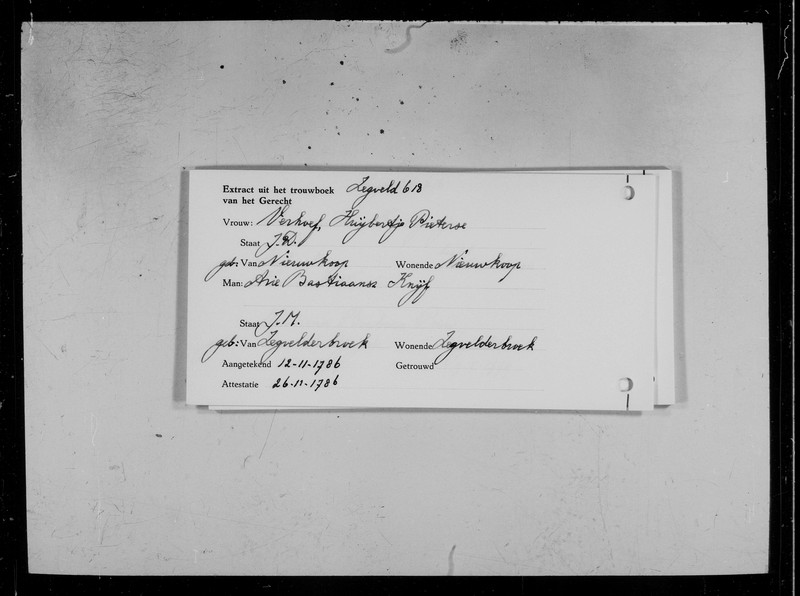 Extract uit het trouwboek Zegveld 6 18
van het Gerecht
Vrouw: Verhoef, Huijbertje Pieterse
Staat J.D.
geb: Van Nieuwkoop Wonende Nieuwkoop
Man: Arie Bastiaansz Knijf
Staat J.M.
geb: Van Zegvelderbroek Wonende Zegvelderbroek
Aangetekend 12-11-1786 Getrouwd
Attestatie 26-11-1786